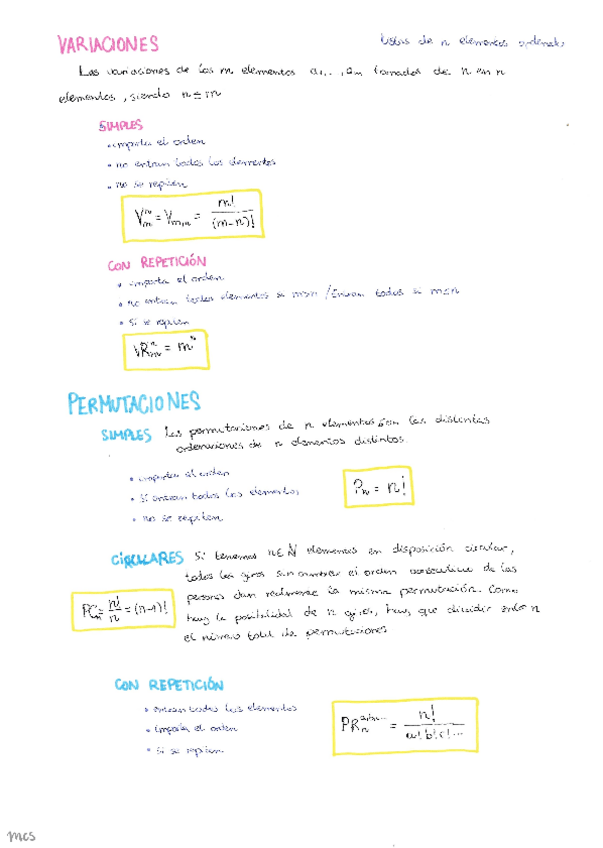 VARIACIONES
listas de n elementos ordenados
Las variaciones de los m elementos a₁,..,aₘ tomados de n en n
elementos, siendo n ≤ m
SIMPLES
• importa el orden
• no entran todos los elementos
• no se repiten
Vₘⁿ = Vₘ,ₙ = m! / (m-n)!
CON REPETICIÓN
• importa el orden
• no entran todos elementos si m>n / Entran todos si m≤n
• Si se repiten
VRₘⁿ = mⁿ
PERMUTACIONES
SIMPLES Las permutaciones de n elementos son las distintas
ordenaciones de n elementos distintos.
• importa el orden
• Si entran todos los elementos
• no se repiten
Pₙ = n!
CIRCULARES Si tenemos n∈N elementos en disposición circular,
todos los giros sin cambiar el orden consecutivo de las
personas dan realmente la misma permutación. Como
hay la posibilidad de n giros, hay que dividir entre n
el número total de permutaciones
PCₙ = n!/n = (n-1)!
CON REPETICIÓN
• entran todos los elementos
• Importa el orden
• Si se repiten
PRₙᵃ'ᵇ'ᶜ··· = n! / a!b!c!...
mcs